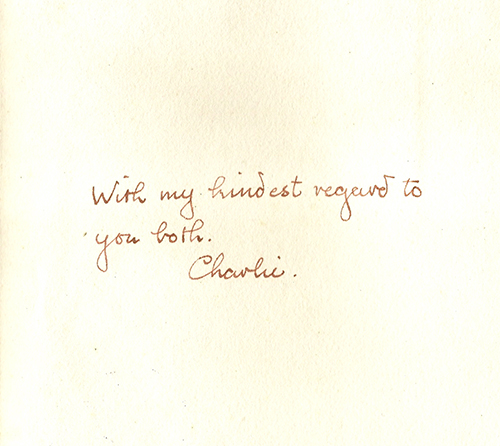 With my kindest regard to
you both.
Charlie.